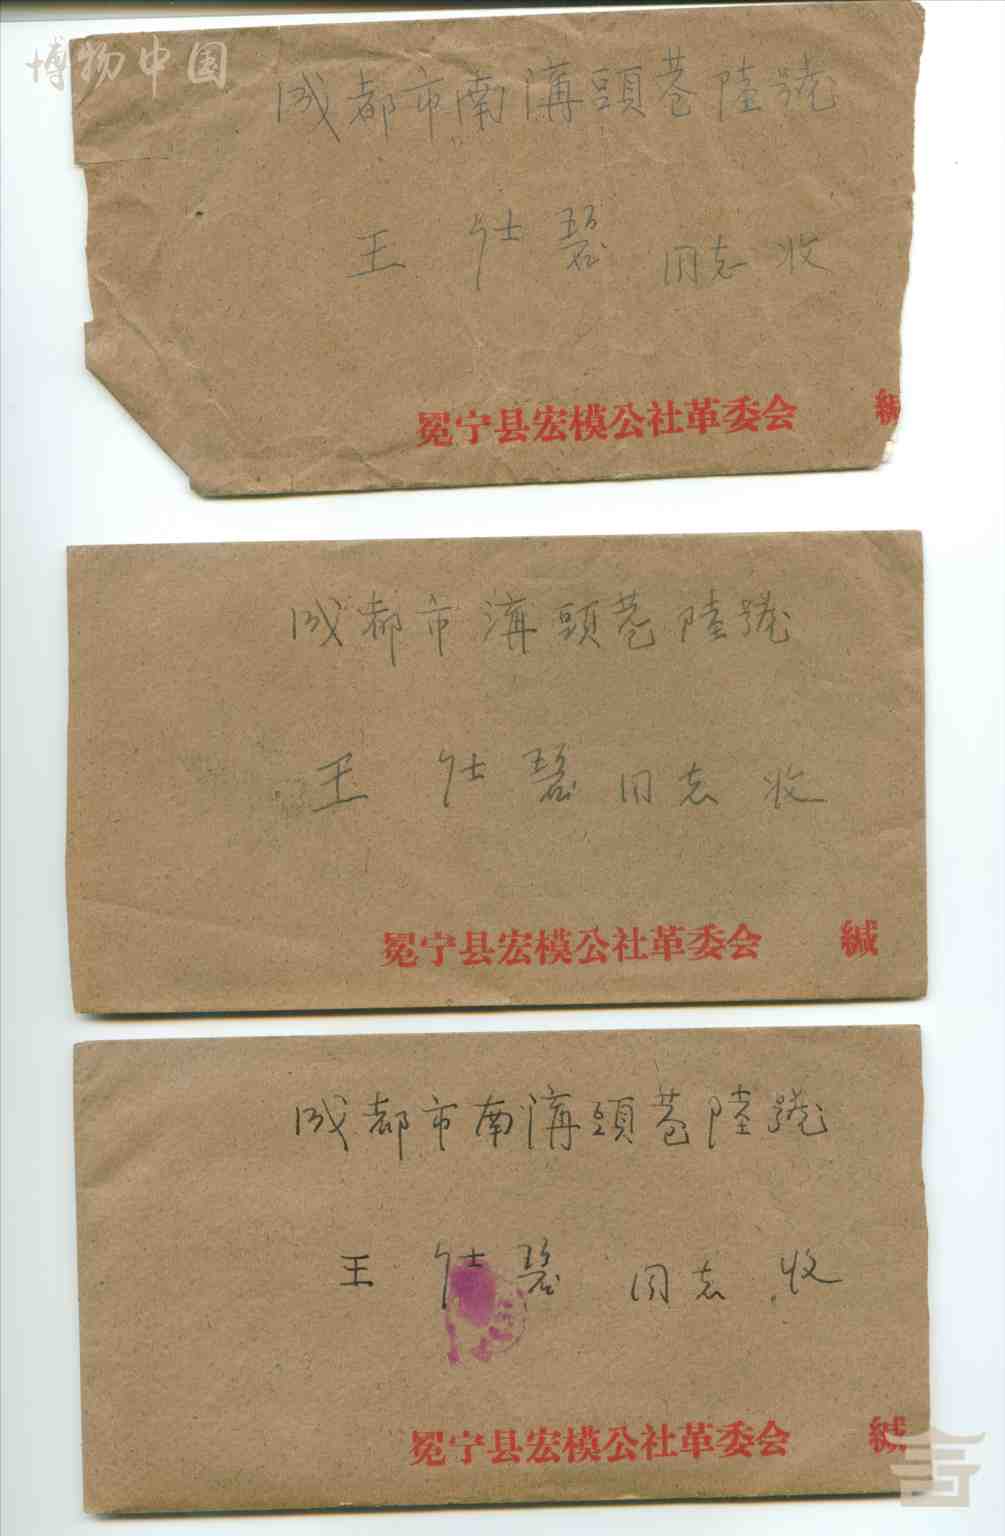 博物中国
成都市南溝頭巷陸號
王仕碧同志收
冕宁县宏模公社革委会 緘
成都市溝頭巷陸號
王仕碧同志收
冕宁县宏模公社革委会 緘
成都市南溝頭巷陸號
王仕碧同志收
冕宁县宏模公社革委会 緘